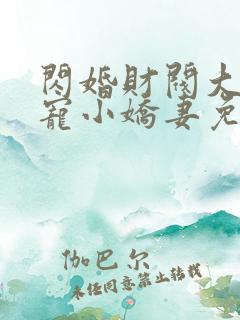 閃婚財閥大
寵小嬌妻免
伽巴尔
未经同意禁止转载